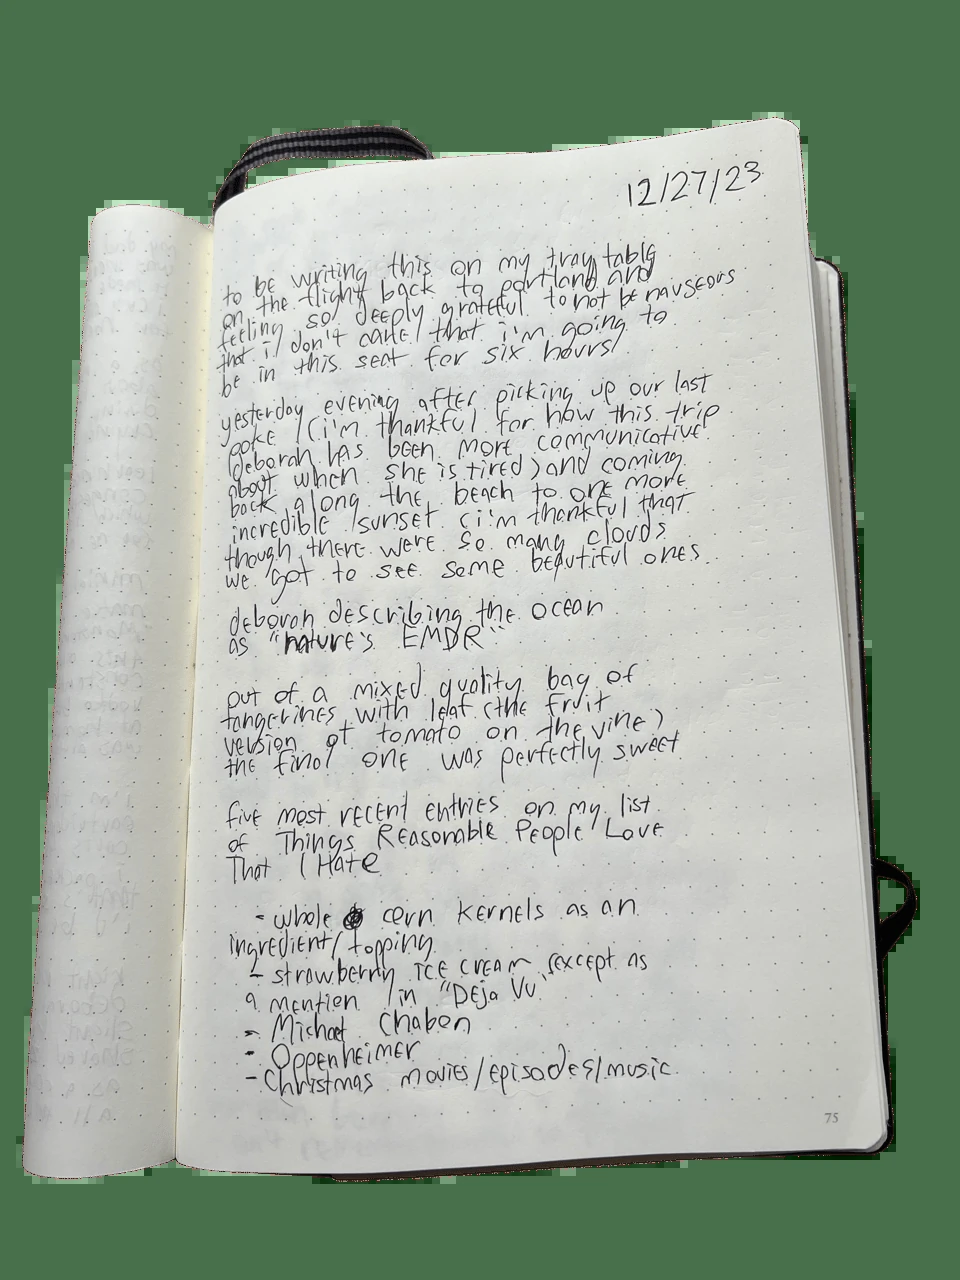 12/27/23
to be writing this on my tray table
on the flight back to portland and
feeling so deeply grateful to not be nauseous
that i don't care that i'm going to
be in this seat for six hours
yesterday evening after picking up our last
poke (i'm thankful for how this trip
deborah has been more communicative
about when she is tired) and coming
back along the beach to one more
incredible sunset (i'm thankful that
though there were so many clouds
we got to see some beautiful ones
deborah describing the ocean
as "nature's EMDR"
out of a mixed quality bag of
tangerines with leaf (the fruit
version of tomato on the vine)
the final one was perfectly sweet
five most recent entries on my list
of Things Reasonable People Love
That I Hate
- whole corn kernels as an
ingredient/topping
- strawberry ice cream (except as
a mention in "Deja Vu"
- Michael Chabon
- Oppenheimer
- Christmas movies/episodes/music
75